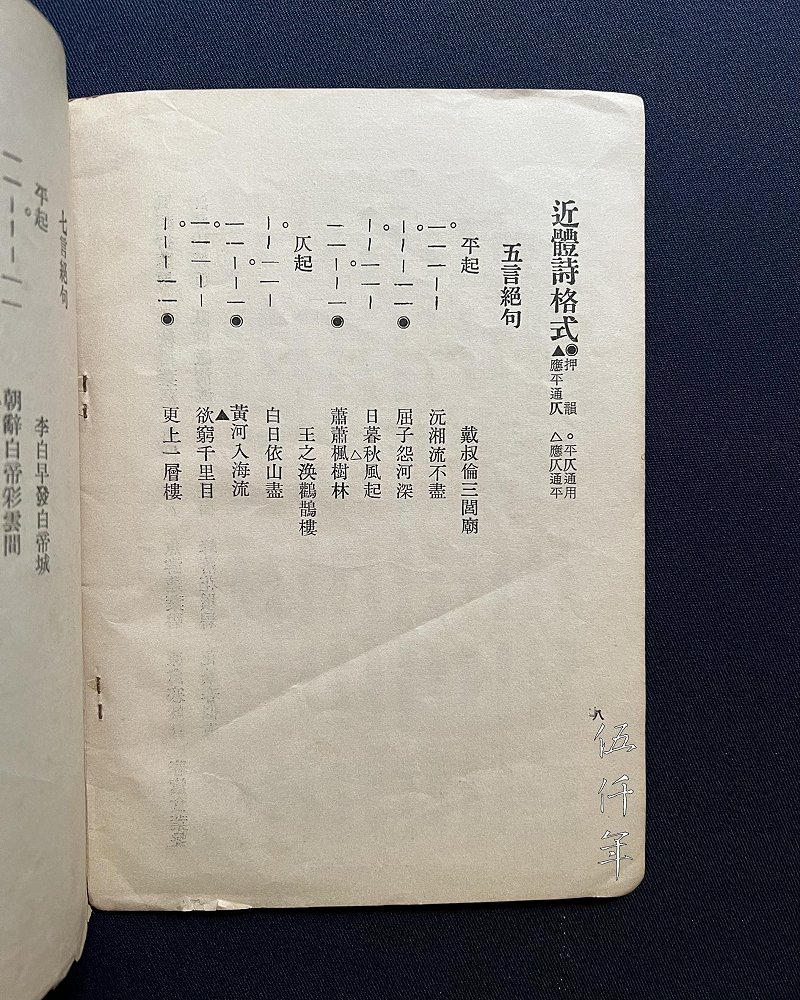 近體詩格式 ◉押韻 ▲應平通仄 ○平仄通用 △應仄通平
五言絕句
平起 戴叔倫三閭廟
沅湘流不盡
屈子怨河深
日暮秋風起
蕭蕭楓樹林
仄起 王之渙鸛鵲樓
白日依山盡
黃河入海流
欲窮千里目
更上一層樓
八
伍仟年
七言絕句
平起 李白早發白帝城
朝辭白帝彩雲間